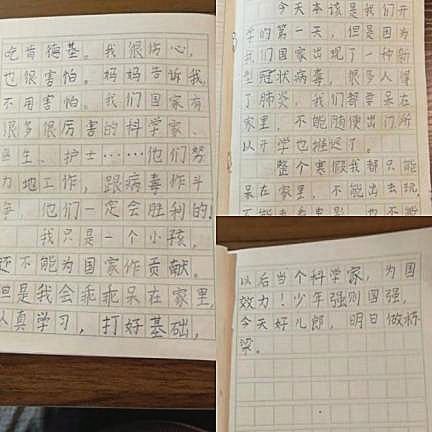 今天本该是我们开
学的第一天，但是因为
我们国家出现了一种新
型冠状病毒，很多人得
了肺炎，我们都要呆在
家里，不能随便出门，所
以开学也推迟了。
整个寒假我都只能
呆在家里，不能出去玩，
不能去看电影，也不能
吃肯德基。我很伤心，
也很害怕。妈妈告诉我，
不用害怕。我们国家有
很多很厉害的科学家、
医生、护士……他们努
力地工作，跟病毒作斗
争，他们一定会胜利的！
我只是一个小孩，
还不能为国家作贡献。
但是我会乖乖呆在家里，
认真学习，打好基础，
以后当个科学家，为国
效力！少年强则国强，
今天好儿郎，明日做栋
梁。